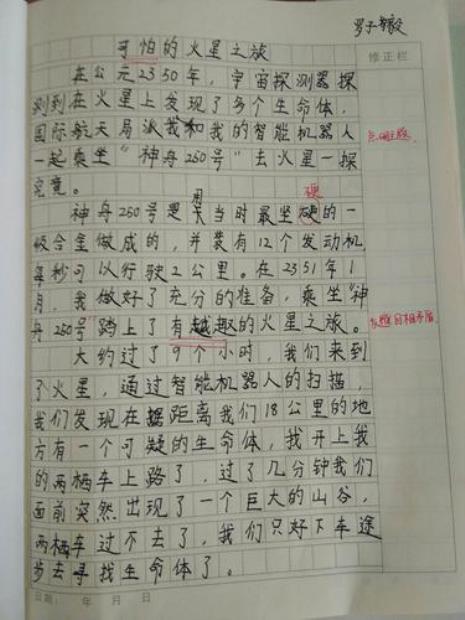 可怕的火星之旅
修正栏
在公元2350年，宇宙探测器探
测到在火星上发现了多个生命体，
国际航天局派我和我的智能机器人
一起乘坐“神舟250号”去火星一探
究竟。
硬
神舟250号是用当时最坚硬的一
级合金做成的，并装有12个发动机，
每秒可以行驶2公里。在2351年1
月，我做好了充分的准备，乘坐“神
舟250号”踏上了有趣的火星之旅。
大约过了9个小时，我们来到
了火星，通过智能机器人的扫描，
我们发现在距离我们18公里的地
方有一个可疑的生命体，我开上我
的两栖车上路了，过了几分钟我们
面前突然出现了一个巨大的山谷，
两栖车过不去了，我们只好下车徒
步去寻找生命体了。
日期： 年 月 日